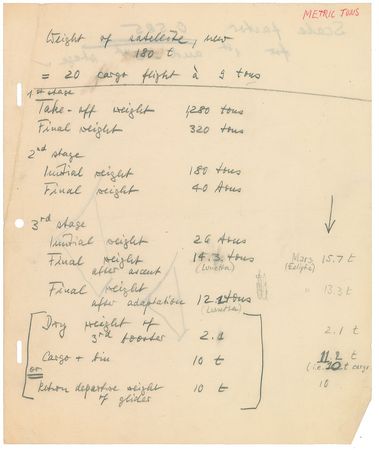 METRIC TONS
Weight of satellite, new
180 t
= 20 cargo flight à 9 tons
1st stage
Take-off weight 1280 tons
Final weight 320 tons
2nd stage
Initial weight 180 tons
Final weight 40 tons
3rd stage
Initial weight 26 tons
Final weight 14.3 tons Mars 15.7 t
after ascent (Lunetta)
Final weight 13.3 t
after adaptation tons
(Lunetta)
Dry weight of 2.1 t
3rd booster 2.1
Cargo + bin 10 t 11.2 t
or (i.e. t cargo
Return departure weight 10 t 10
of glider